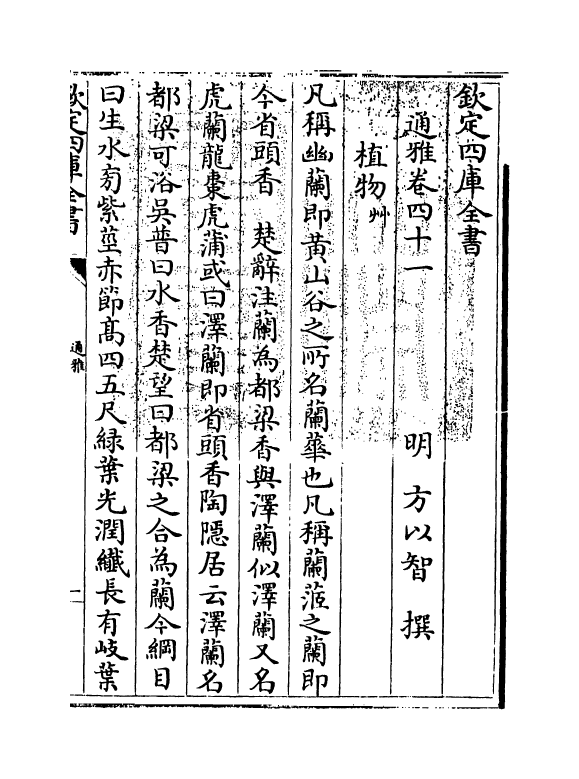 欽定四庫全書
通雅卷四十一
明 方以智 撰
植物艸
凡稱幽蘭即黃山谷之所名蘭蕐也凡稱蘭蒞之蘭即
今省頭香 楚辭注蘭為都梁香與澤蘭似澤蘭又名
虎蘭龍棗虎蒲或曰澤蘭即省頭香陶隱居云澤蘭名
都梁可浴吳普曰水香楚望曰都梁之合為蘭今綱目
曰生水旁紫莖赤節髙四五尺綠葉光潤纖長有岐葉
欽定四庫全書
通雅